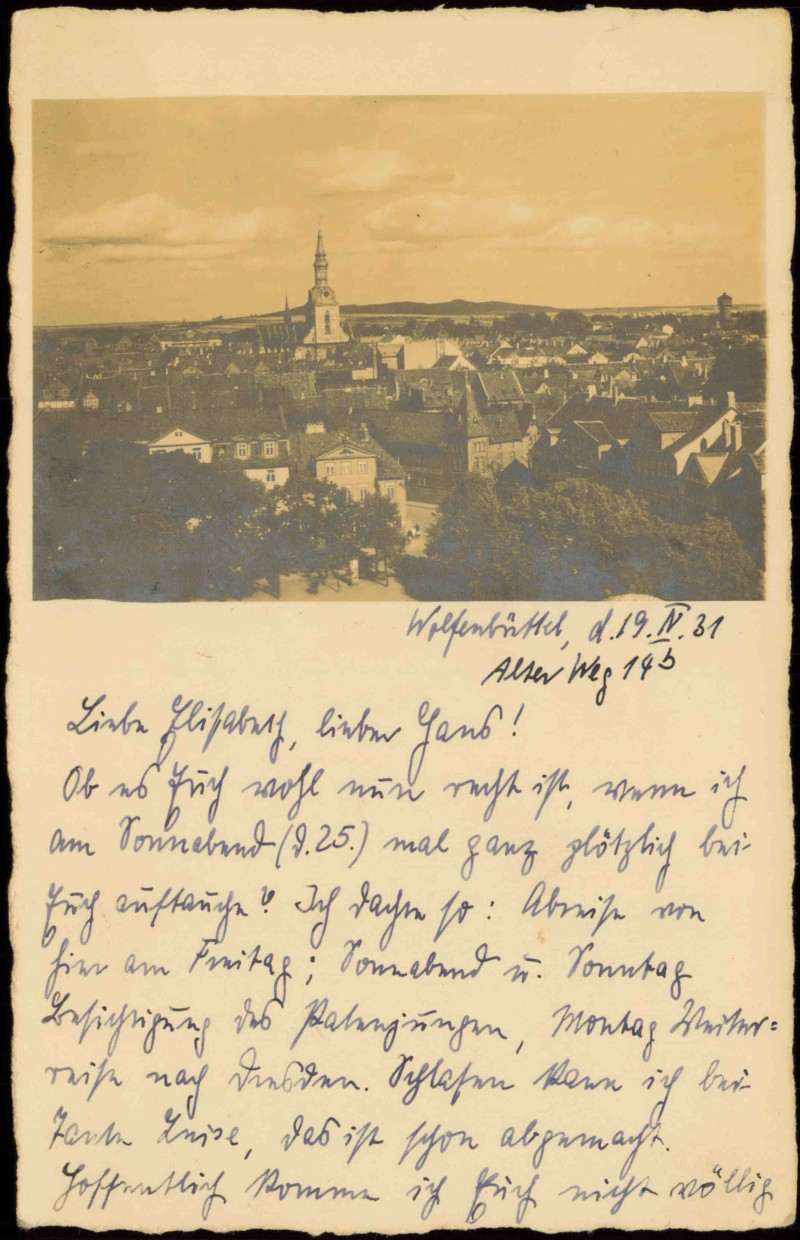 Wolfenbüttel, d. 19. IV. 31
Alter Weg 14b
Liebe Elisabeth, lieber Hans!
Ob es Euch wohl nun recht ist, wenn ich
am Sonnabend (d. 25.) mal ganz plötzlich bei
Euch auftauche? Ich dachte so: Abreise von
hier am Freitag; Sonnabend u. Sonntag
Besichtigung des Patenjungen, Montag Weiter=
reise nach Dresden. Schlafen kann ich bei
Tante Luise, das ist schon abgemacht.
Hoffentlich komme ich Euch nicht völlig